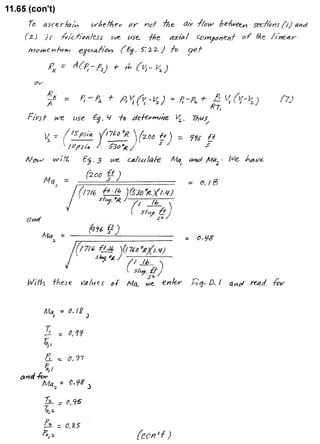 11.65 (con't)
To ascertain whether or not the air flow between sections (1) and
(2) is frictionless we use the axial component of the linear
momentum equation (Eq. 5.22) to get
Rx = A(P1 - P2) + ṁ (V1 - V2)
or
Rx/A = P1 - P2 + ρ1V1(V1 - V2) = P1 - P2 + P1/RT1 V1 (V1 - V2) (7)
First we use Eq. 4 to determine V2. Thus,
V2 = (15 psia / 10 psia)(1760°R / 530°R)(200 ft/s) = 996 ft/s
Now with Eq. 3 we calculate Ma1 and Ma2. We have
Ma1 = (200 ft/s) / √((1716 ft·lb/slug·°R)(530°R)(1.4) / (1 lb/slug·ft/s²)) = 0.18
and
Ma2 = (996 ft/s) / √((1716 ft·lb/slug·°R)(1760°R)(1.4) / (1 lb/slug·ft/s²)) = 0.48
With these values of Ma we enter Fig. D.1 and read for
Ma1 = 0.18,
T1/T0,1 = 0.99
P1/P0,1 = 0.97
and for
Ma2 = 0.48,
T2/T0,2 = 0.96
P2/P0,2 = 0.85
(con't)